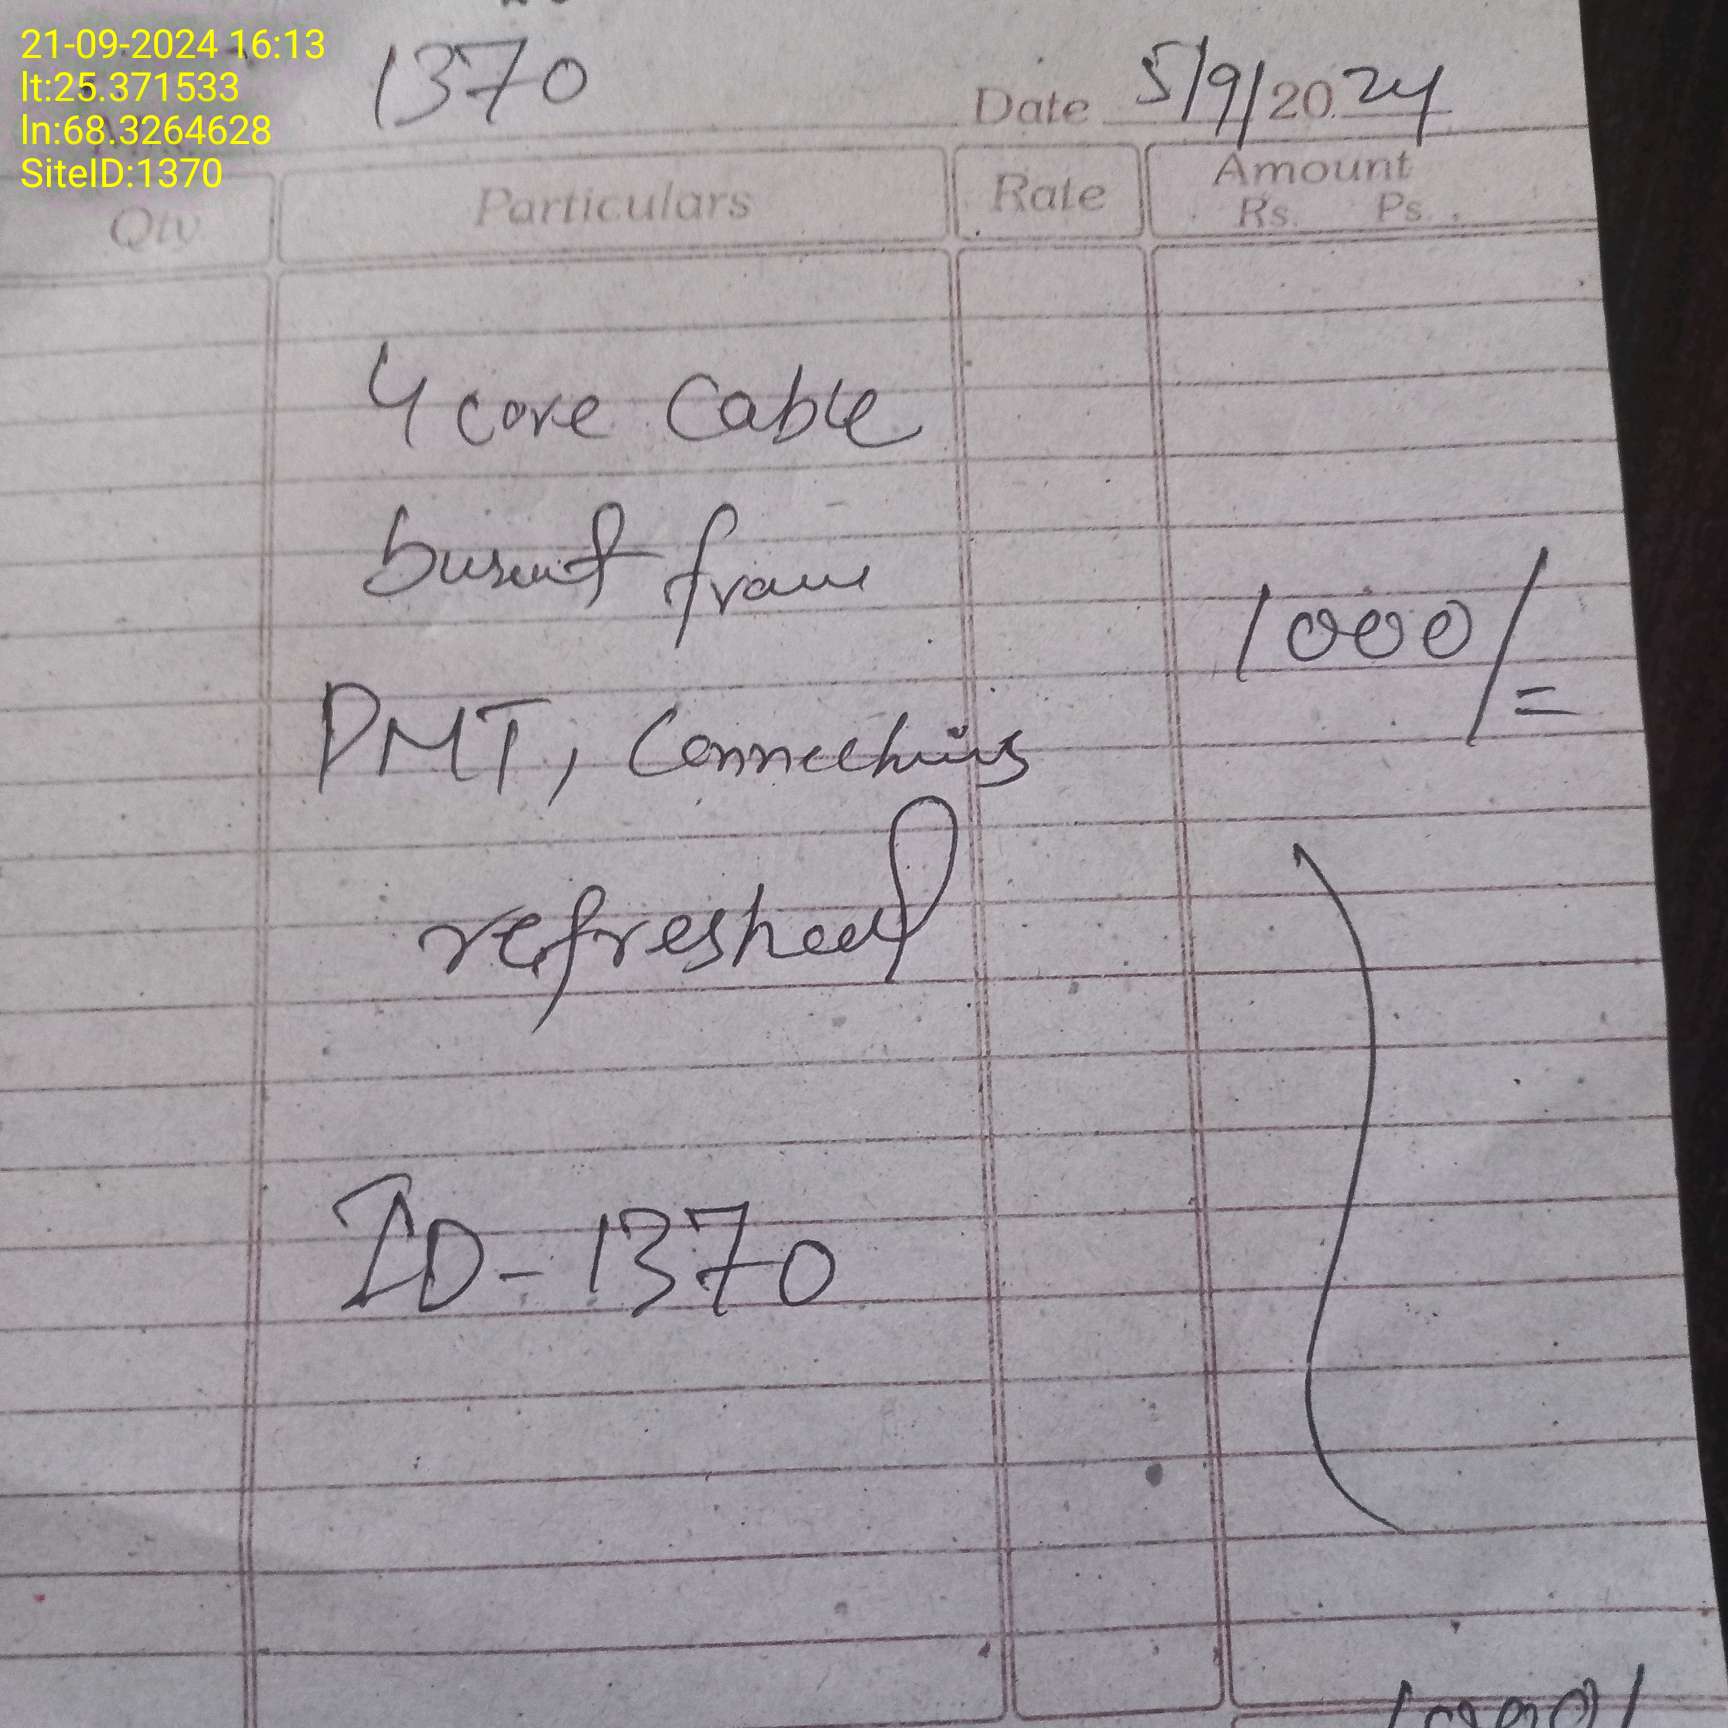 21-09-2024 16:13
lt:25.371533
ln:68.3264628
SiteID:1370
1370
Date 5/9/2024
Qty Particulars Rate Amount
Rs. Ps.
4 core Cable
burnt from
PMT, Connections 1000/=
refreshed
ID-1370